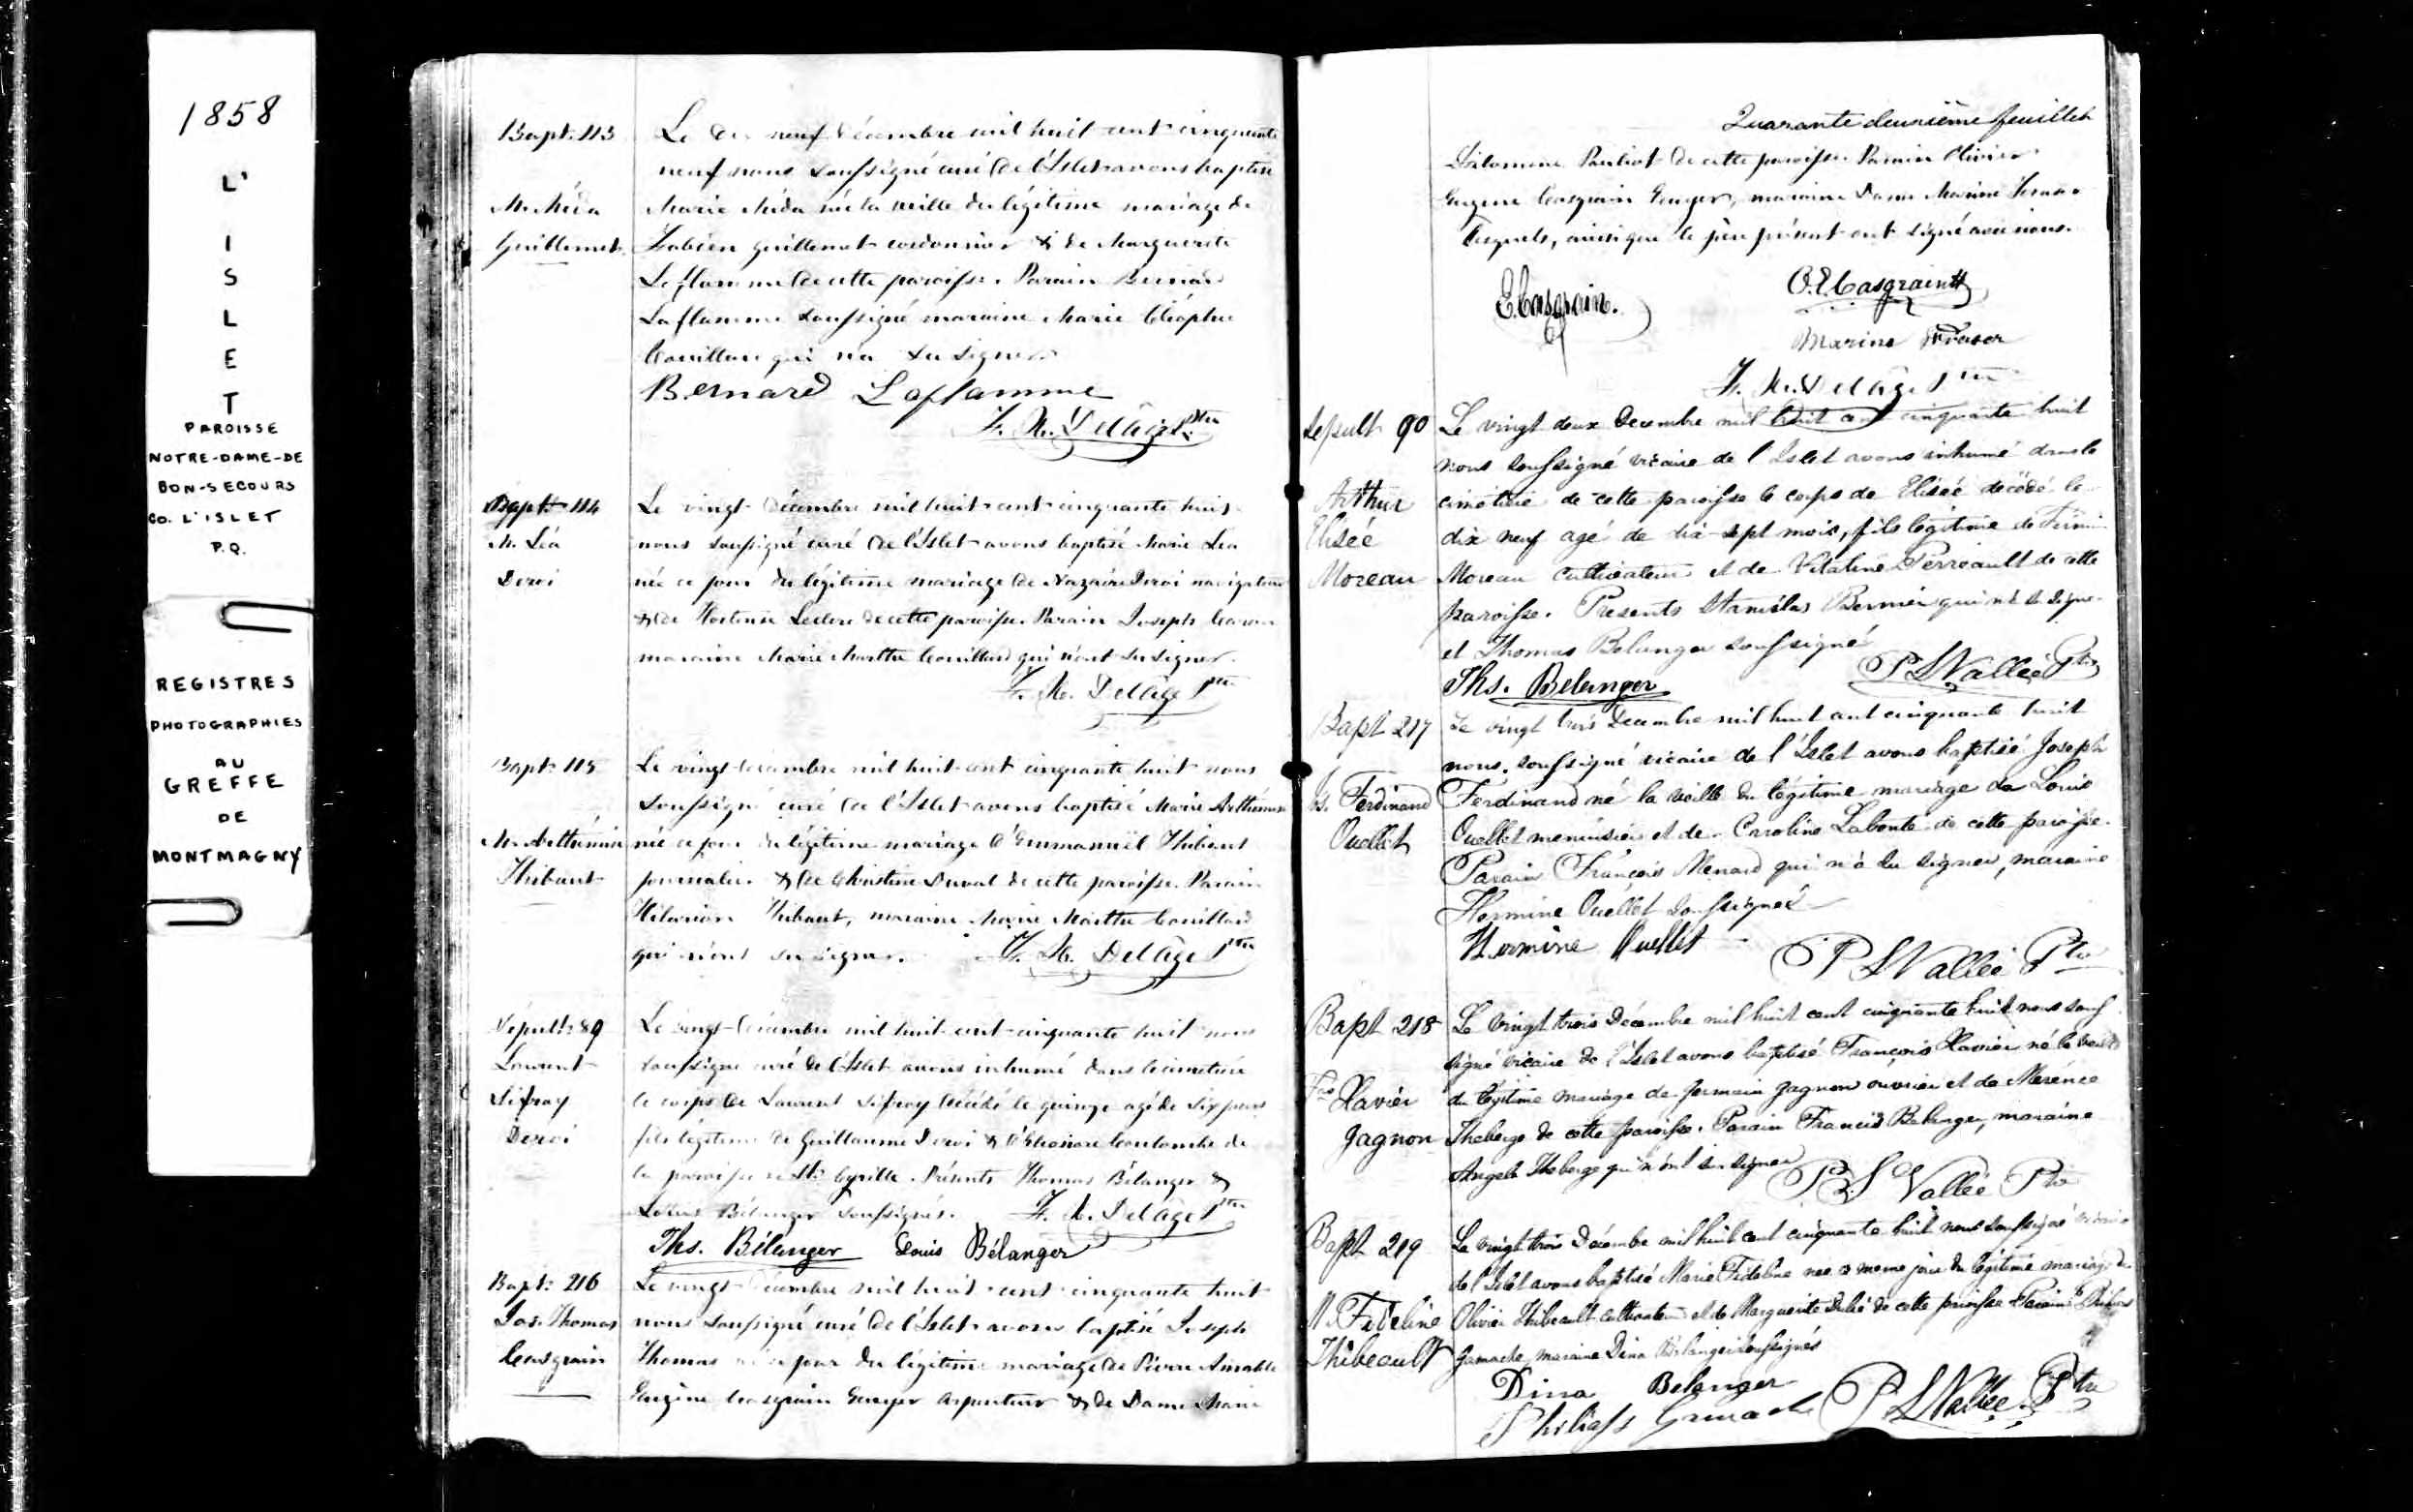 1858
L'
I
S
L
E
T
PAROISSE
NOTRE-DAME-DE
BON-SECOURS
Co. L'ISLET
P.Q.
REGISTRES
PHOTOGRAPHIES
AU
GREFFE
DE
MONTMAGNY
Bapt. 113
M. Méda
Guillemet
Le dix neuf décembre mil huit cent cinquante
neuf nous soussigné curé de l'Islet avons baptisé
Marie Méda née la veille du légitime mariage de
Fabien Guillemet cordonnier & de Marguerite
Laflamme de cette paroisse. Parain Bernard
Laflamme soussigné maraine Marie Cléophee
Couillard qui n'a su signer
Bernard Laflamme
F. X. Delâge Ptre
Bapt. 114
M. Léa
Deroi
Le vingt décembre mil huit cent cinquante huit
nous soussigné curé de l'Islet avons baptisé Marie Lea
née ce jour du légitime mariage de Nazaire Deroi navigateur
& de Hortense Leclerc de cette paroisse. Parain Joseph
maraine Marie Marthe Couillard qui n'ont su signer.
F. X. Delâge Ptre
Bapt. 115
M. Arthémise
Thibaut
Le vingt décembre mil huit cent cinquante huit nous
soussigné curé de l'Islet avons baptisé Marie Arthémise
née ce jour du légitime mariage d'Emmanuël Thibaut
journalier & de Christine Duval de cette paroisse. Parain
Hilarion Thibaut, maraine Marie Marthe Couillard
qui n'ont su signer. F. X. Delâge Ptre
Sépult. 89
Laurent
Sifroy
Deroi
Le vingt décembre mil huit cent cinquante huit nous
soussigné curé de l'Islet avons inhumé dans le cimetière
le corps de Laurent Sifroy décédé le quinze agé de six jours
fils légitime de Guillaume Deroi & d'Eléonore Coulombe de
la paroisse de St. Cyrille. Présents Thomas Bélanger &
Louis Bélanger soussignés. F. X. Delâge Ptre
Ths. Bélanger Louis Bélanger
Bapt. 216
Jos. Thomas
Casgrain
Le vingt décembre mil huit cent cinquante huit
nous soussigné curé de l'Islet avons baptisé Joseph
Thomas né ce jour du légitime mariage de Pierre Amable
Eugène Casgrain Ecuyer Arpenteur & de Dame Marie
Quarante deuxième feuillet
Philomene Pouliot de cette paroisse. Parain Olivier
Eugene Casgrain Ecuyer, maraine Dame Marine Fraser
lesquels, ainsi que le père présent ont signé avec nous.
E. Casgrain. O. E. Casgrain
Marine Fraser
F. X. Delâge Ptre
Sepult 90
Arthur
Elisée
Moreau
Le vingt deux Decembre mil huit cent cinquante huit
nous soussigné vicaire de l'Islet avons inhumé dans le
cimetière de cette paroisse le corps de Elisée décédé le
dix neuf agé de dix-sept mois, fils légitime de Firmin
Moreau Cultivateur et de Vitaline Perreault de cette
paroisse. Presents Stanislas Bernier qui n'a su signer
et Thomas Belanger soussigné
Ths. Belanger P S Vallée Ptre
Bapt 217
Js. Ferdinand
Ouellet
Le vingt trois Decembre mil huit cent cinquante huit
nous, soussigné vicaire de l'Islet avons baptisé Joseph
Ferdinand né la veille du légitime mariage de Louis
Ouellet menuisier et de Caroline Labonté de cette paroisse.
Parain François Menard qui n'a su signer, maraine
Hermine Ouellet soussignée
Hermine Ouellet P S Vallée Ptre
Bapt 218
Fcs Xavier
Gagnon
Le vingt trois Décembre mil huit cent cinquante huit nous sous
signé vicaire de l'Islet avons baptisé François Xavier né la veille
du légitime mariage de Germain Gagnon ouvrier et de Merence
Theberge de cette paroisse. Parain Francis Belanger, maraine
Angele Theberge qui n'ont su signer P S Vallée Ptre
Bapt 219
M. Fideline
Thibeault
Le vingt trois Décembre mil huit cent cinquante huit nous soussigné vicaire
de l'Islet avons baptisé Marie Fideline nee ce meme jour du légitime mariage de
Olivier Thibeault cultivateur et de Marguerite de cette paroisse Parain
Gamache, maraine Dina Belanger soussignés
Dina Belanger
Gamache P S Vallée Ptre